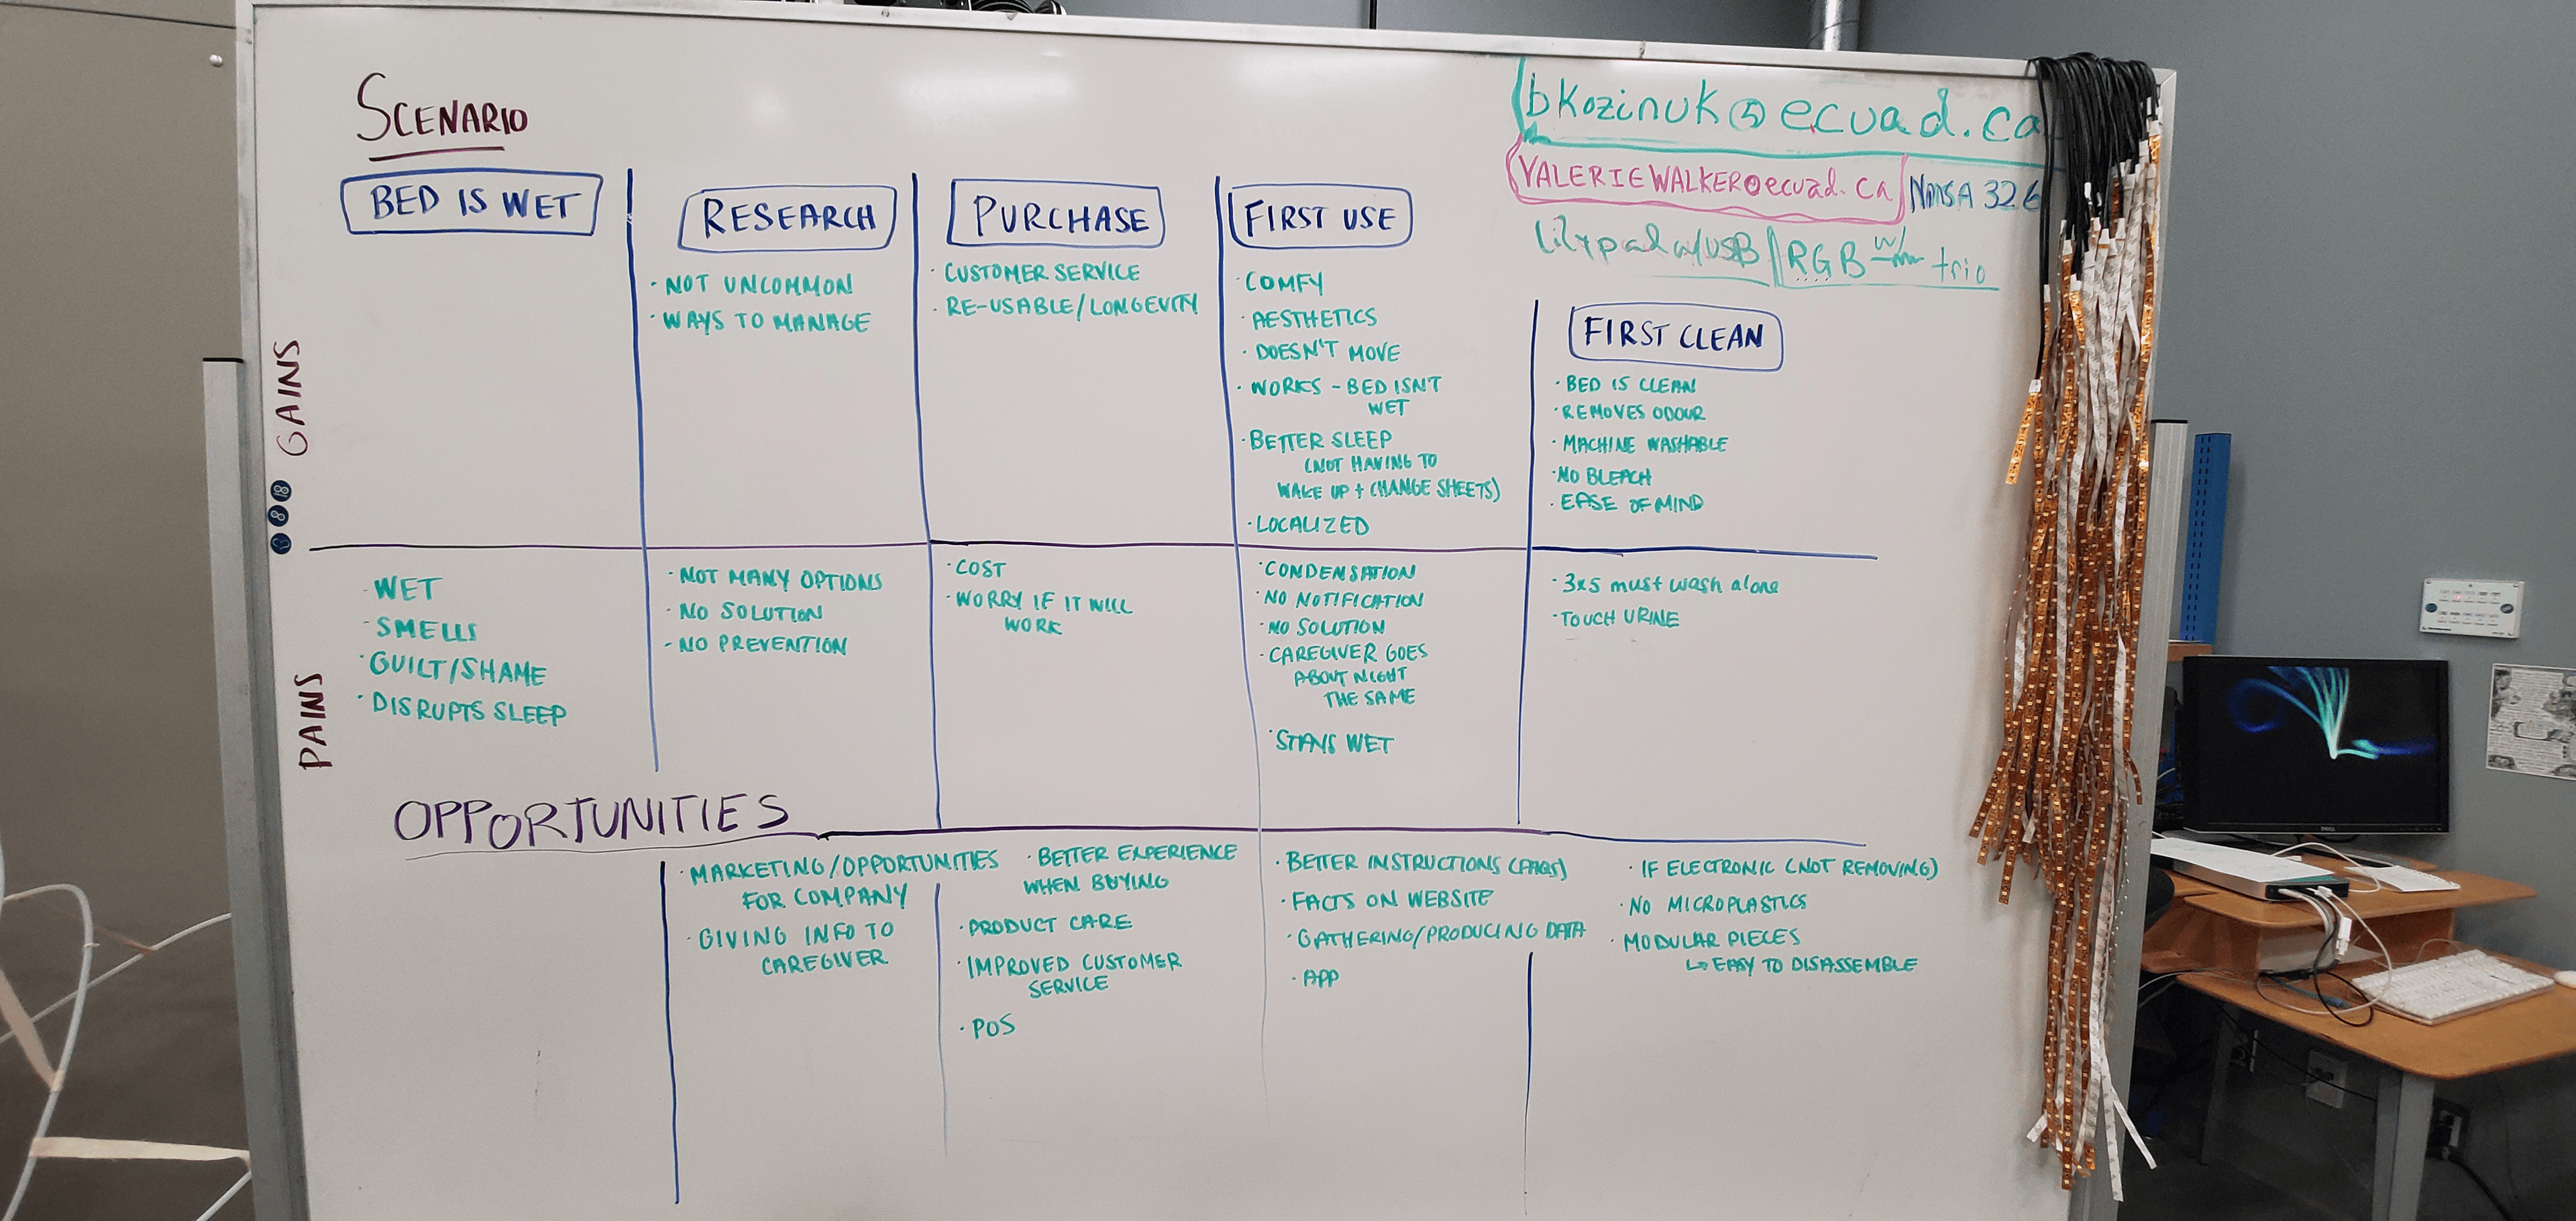 SCENARIO
bkozinuk@ecuad.ca
VALERIEWALKER@ecuad.ca
NMSA 326
lilypad w/USB
RGB w/ trio
BED IS WET
RESEARCH
PURCHASE
FIRST USE
FIRST CLEAN
GAINS
· NOT UNCOMMON
· WAYS TO MANAGE
· CUSTOMER SERVICE
· RE-USABLE/LONGEVITY
· COMFY
· AESTHETICS
· DOESN'T MOVE
· WORKS - BED ISN'T
WET
· BETTER SLEEP
(NOT HAVING TO
WAKE UP + CHANGE SHEETS)
· LOCALIZED
· BED IS CLEAN
· REMOVES ODOUR
· MACHINE WASHABLE
· NO BLEACH
· EASE OF MIND
PAINS
· WET
· SMELLS
· GUILT/SHAME
· DISRUPTS SLEEP
· NOT MANY OPTIONS
· NO SOLUTION
- NO PREVENTION
· COST
· WORRY IF IT WILL
WORK
· CONDENSATION
· NO NOTIFICATION
· NO SOLUTION
· CAREGIVER GOES
ABOUT NIGHT
THE SAME
· STAYS WET
· 3x5 must wash alone
· TOUCH URINE
OPPORTUNITIES
· MARKETING/OPPORTUNITIES
FOR COMPANY
· GIVING INFO TO
CAREGIVER
· BETTER EXPERIENCE
WHEN BUYING
· PRODUCT CARE
· IMPROVED CUSTOMER
SERVICE
· POS
· BETTER INSTRUCTIONS (FAQS)
· FACTS ON WEBSITE
· GATHERING/PRODUCING DATA
· APP
· IF ELECTRONIC (NOT REMOVING)
· NO MICROPLASTICS
· MODULAR PIECES
↳ EASY TO DISASSEMBLE
DELL